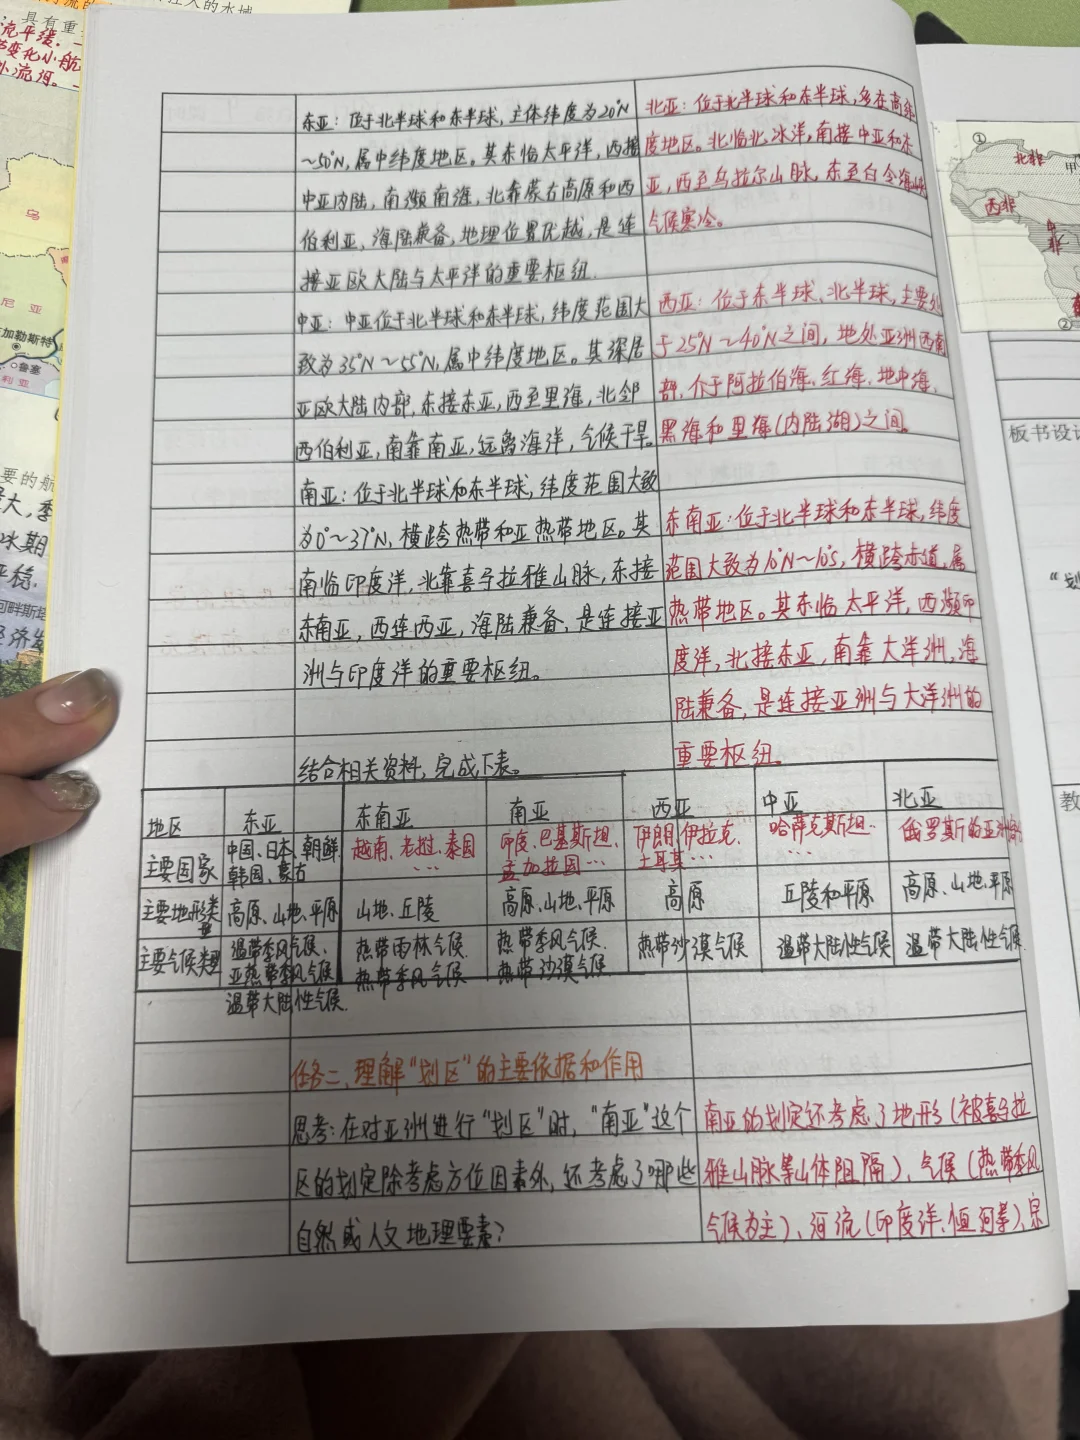 具有重
流平缓.
变化小航
外流河。
乌
尼 亚
加勒斯特
鲁塞
利 亚
要的航
大,季
冰期
河畔斯塔
济发
东亚:位于北半球和东半球,主体纬度为20°N
~50°N,属中纬度地区。其东临太平洋,西接
中亚内陆,南濒南海,北靠蒙古高原和西
伯利亚,海陆兼备,地理位置优越,是连
接亚欧大陆与太平洋的重要枢纽.
中亚:中亚位于北半球和东半球,纬度范围大
致为35°N~55°N,属中纬度地区。其深居
亚欧大陆内部,东接东亚,西至里海,北邻
西伯利亚,南靠南亚,远离海洋,气候干旱。
南亚:位于北半球和东半球,纬度范围大致
为0°~37°N,横跨热带和亚热带地区。其
南临印度洋,北靠喜马拉雅山脉,东接
东南亚,西连西亚,海陆兼备,是连接亚
洲与印度洋的重要枢纽。
北亚:位于北半球和东半球,多在高纬
度地区。北临北冰洋,南接中亚和东
亚,西至乌拉尔山脉,东至白令海峡
气候寒冷。
西亚:位于东半球、北半球,主要处
于25°N~40°N之间,地处亚洲西南
部,介于阿拉伯海、红海、地中海、
黑海和里海(内陆湖)之间。
东南亚:位于北半球和东半球,纬度
范围大致为10°N~10°S,横跨赤道,属
热带地区。其东临太平洋,西濒印
度洋,北接东亚,南靠大洋洲,海
陆兼备,是连接亚洲与大洋洲的
重要枢纽.
结合相关资料,完成下表。
地区 东亚 东南亚 南亚 西亚 中亚 北亚
主要国家 中国、日本、朝鲜 韩国、蒙古 越南、老挝、泰国… 印度、巴基斯坦、孟加拉国… 伊朗、伊拉克、土耳其… 哈萨克斯坦… 俄罗斯的亚洲部分
主要地形类型 高原、山地、平原 山地、丘陵 高原、山地、平原 高原 丘陵和平原 高原、山地、平原
主要气候类型 温带季风气候、亚热带季风气候 温带大陆性气候. 热带雨林气候、热带季风气候 热带季风气候.热带沙漠气候 热带沙漠气候 温带大陆性气候 温带大陆性气候
任务二、理解"划区"的主要依据和作用
思考:在对亚洲进行"划区"时,"南亚"这个
区的划定除考虑方位因素外,还考虑了哪些
自然或人文地理要素?
南亚的划定还考虑了地形(被喜马拉
雅山脉等山体阻隔)、气候(热带季风
气候为主)、河流(印度洋、恒河等)、宗
①
北非
甲
西非
②
板书设计
"划
教